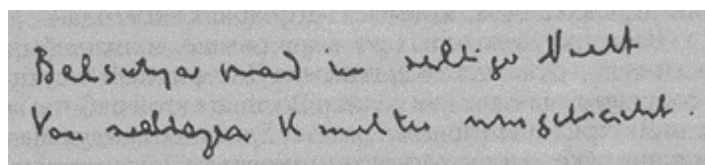 Belsatzar ward in selbiger Nacht
Von seinen Knechten umgebracht.